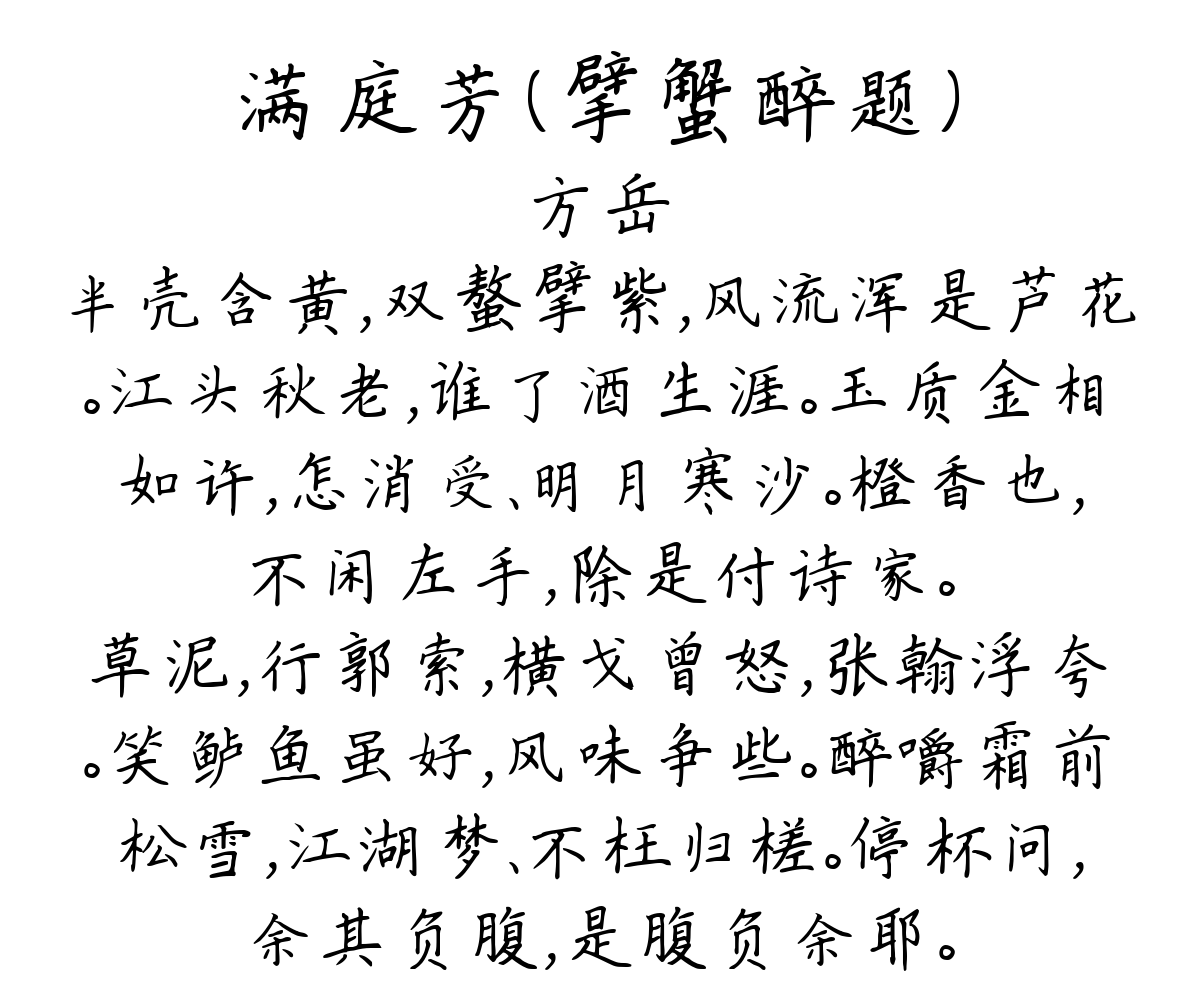 满庭芳(擘蟹醉题)
方岳
半壳含黄,双螯擘紫,风流浑是芦花
。江头秋老,谁了酒生涯。玉质金相
如许,怎消受、明月寒沙。橙香也,
不闲左手,除是付诗家。
草泥,行郭索,横戈曾怒,张翰浮夸
。笑鲈鱼虽好,风味争些。醉嚼霜前
松雪,江湖梦、不枉归槎。停杯问,
余其负腹,是腹负余耶。